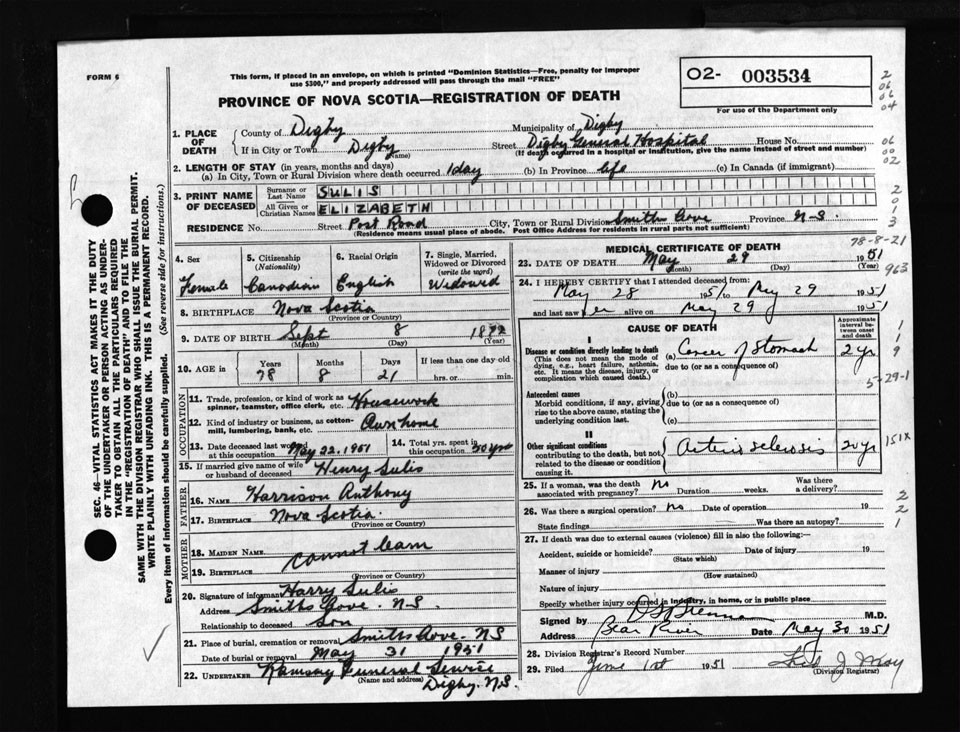 FORM 6
This form, if placed in an envelope, on which is printed "Dominion Statistics—Free, penalty for improper
use $300," and properly addressed will pass through the mail "FREE"
O2- 003534
For use of the Department only
PROVINCE OF NOVA SCOTIA—REGISTRATION OF DEATH
2
06
06
04
1. PLACE OF DEATH
County of Digby Municipality of Digby
If in City or Town Digby (Name) Street Digby General Hospital House No.
(If death occurred in a hospital or institution, give the name instead of street and number)
06
00
02
2. LENGTH OF STAY (in years, months and days)
(a) In City, Town or Rural Division where death occurred 1 day (b) In Province life (c) In Canada (if immigrant)
3. PRINT NAME OF DECEASED
Surname or Last Name SULIS
All Given or Christian Names ELIZABETH
RESIDENCE No. Street Post Road City, Town or Rural Division Smiths Cove Province N-S.
(Residence means usual place of abode. Post Office Address for residents in rural parts not sufficient)
2
0
1
3
SEC. 46—VITAL STATISTICS ACT MAKES IT THE DUTY
OF THE UNDERTAKER OR PERSON ACTING AS UNDER-
TAKER TO OBTAIN ALL THE PARTICULARS REQUIRED
IN THE "REGISTRATION OF DEATH" AND TO FILE THE
SAME WITH THE DIVISION REGISTRAR WHO SHALL ISSUE THE BURIAL PERMIT.
WRITE PLAINLY WITH UNFADING INK. THIS IS A PERMANENT RECORD.
Every item of information should be carefully supplied. (See reverse side for instructions.)
4. Sex
Female
5. Citizenship
(Nationality)
Canadian
6. Racial Origin
English
7. Single, Married,
Widowed or Divorced
(write the word)
Widowed
8. BIRTHPLACE Nova Scotia
(Province or Country)
9. DATE OF BIRTH Sept 8
(Month) (Day) (Year)
10. AGE in Years Months Days If less than one day old
78 8 21 hrs. or min.
OCCUPATION
11. Trade, profession, or kind of work as
spinner, teamster, office clerk, etc. Housework
12. Kind of industry or business, as cotton-
mill, lumbering, bank, etc. Own home
13. Date deceased last worked
at this occupation May 22, 1951
14. Total yrs. spent in
this occupation 50 yrs
15. If married give name of wife
or husband of deceased Henry Sulis
FATHER
16. NAME Harrison Anthony
17. BIRTHPLACE Nova Scotia
(Province or Country)
MOTHER
18. MAIDEN NAME
19. BIRTHPLACE cannot learn
(Province or Country)
20. Signature of informant Harry Sulis
Address Smiths Cove. N-S.
Relationship to deceased Son
21. Place of burial, cremation or removal Smiths Cove. NS
Date of burial or removal May 31 1951
22. UNDERTAKER Ramsay Funeral Service
(Name and address) Digby. N.S.
MEDICAL CERTIFICATE OF DEATH
78-8-21
23. DATE OF DEATH May 29 1951
(Month) (Day) (Year)
963
24. I HEREBY CERTIFY that I attended deceased from:
May 28 1951 to May 29 1951
and last saw her alive on May 29 1951
CAUSE OF DEATH
Approximate
interval be-
tween onset
and death
I
Disease or condition directly leading to death
(This does not mean the mode of
dying, e.g., heart failure, asthenia,
etc. It means the disease, injury, or
complication which caused death.)
(a) Cancer of Stomach 2 yr.
due to (or as a consequence of)
1
1
9
5-29-1
Antecedent causes
Morbid conditions, if any, giving
rise to the above cause, stating the
underlying condition last.
(b)
due to (or as a consequence of)
(c)
II
Other significant conditions
contributing to the death, but not
related to the disease or condition
causing it.
Arterio sclerosis 20 yr
151X
25. If a woman, was the death
associated with pregnancy? No Duration weeks. Was there
a delivery?
26. Was there a surgical operation? no Date of operation 19
State findings Was there an autopsy?
2
2
1
27. If death was due to external causes (violence) fill in also the following:
Accident, suicide or homicide? Date of injury 19
(State which)
Manner of injury
(How sustained)
Nature of injury
Specify whether injury occurred in industry, in home, or in public place
Signed by M.D.
Address Bear River Date May 30 1951
28. Division Registrar's Record Number
29. Filed June 1st 1951
(Division Registrar)